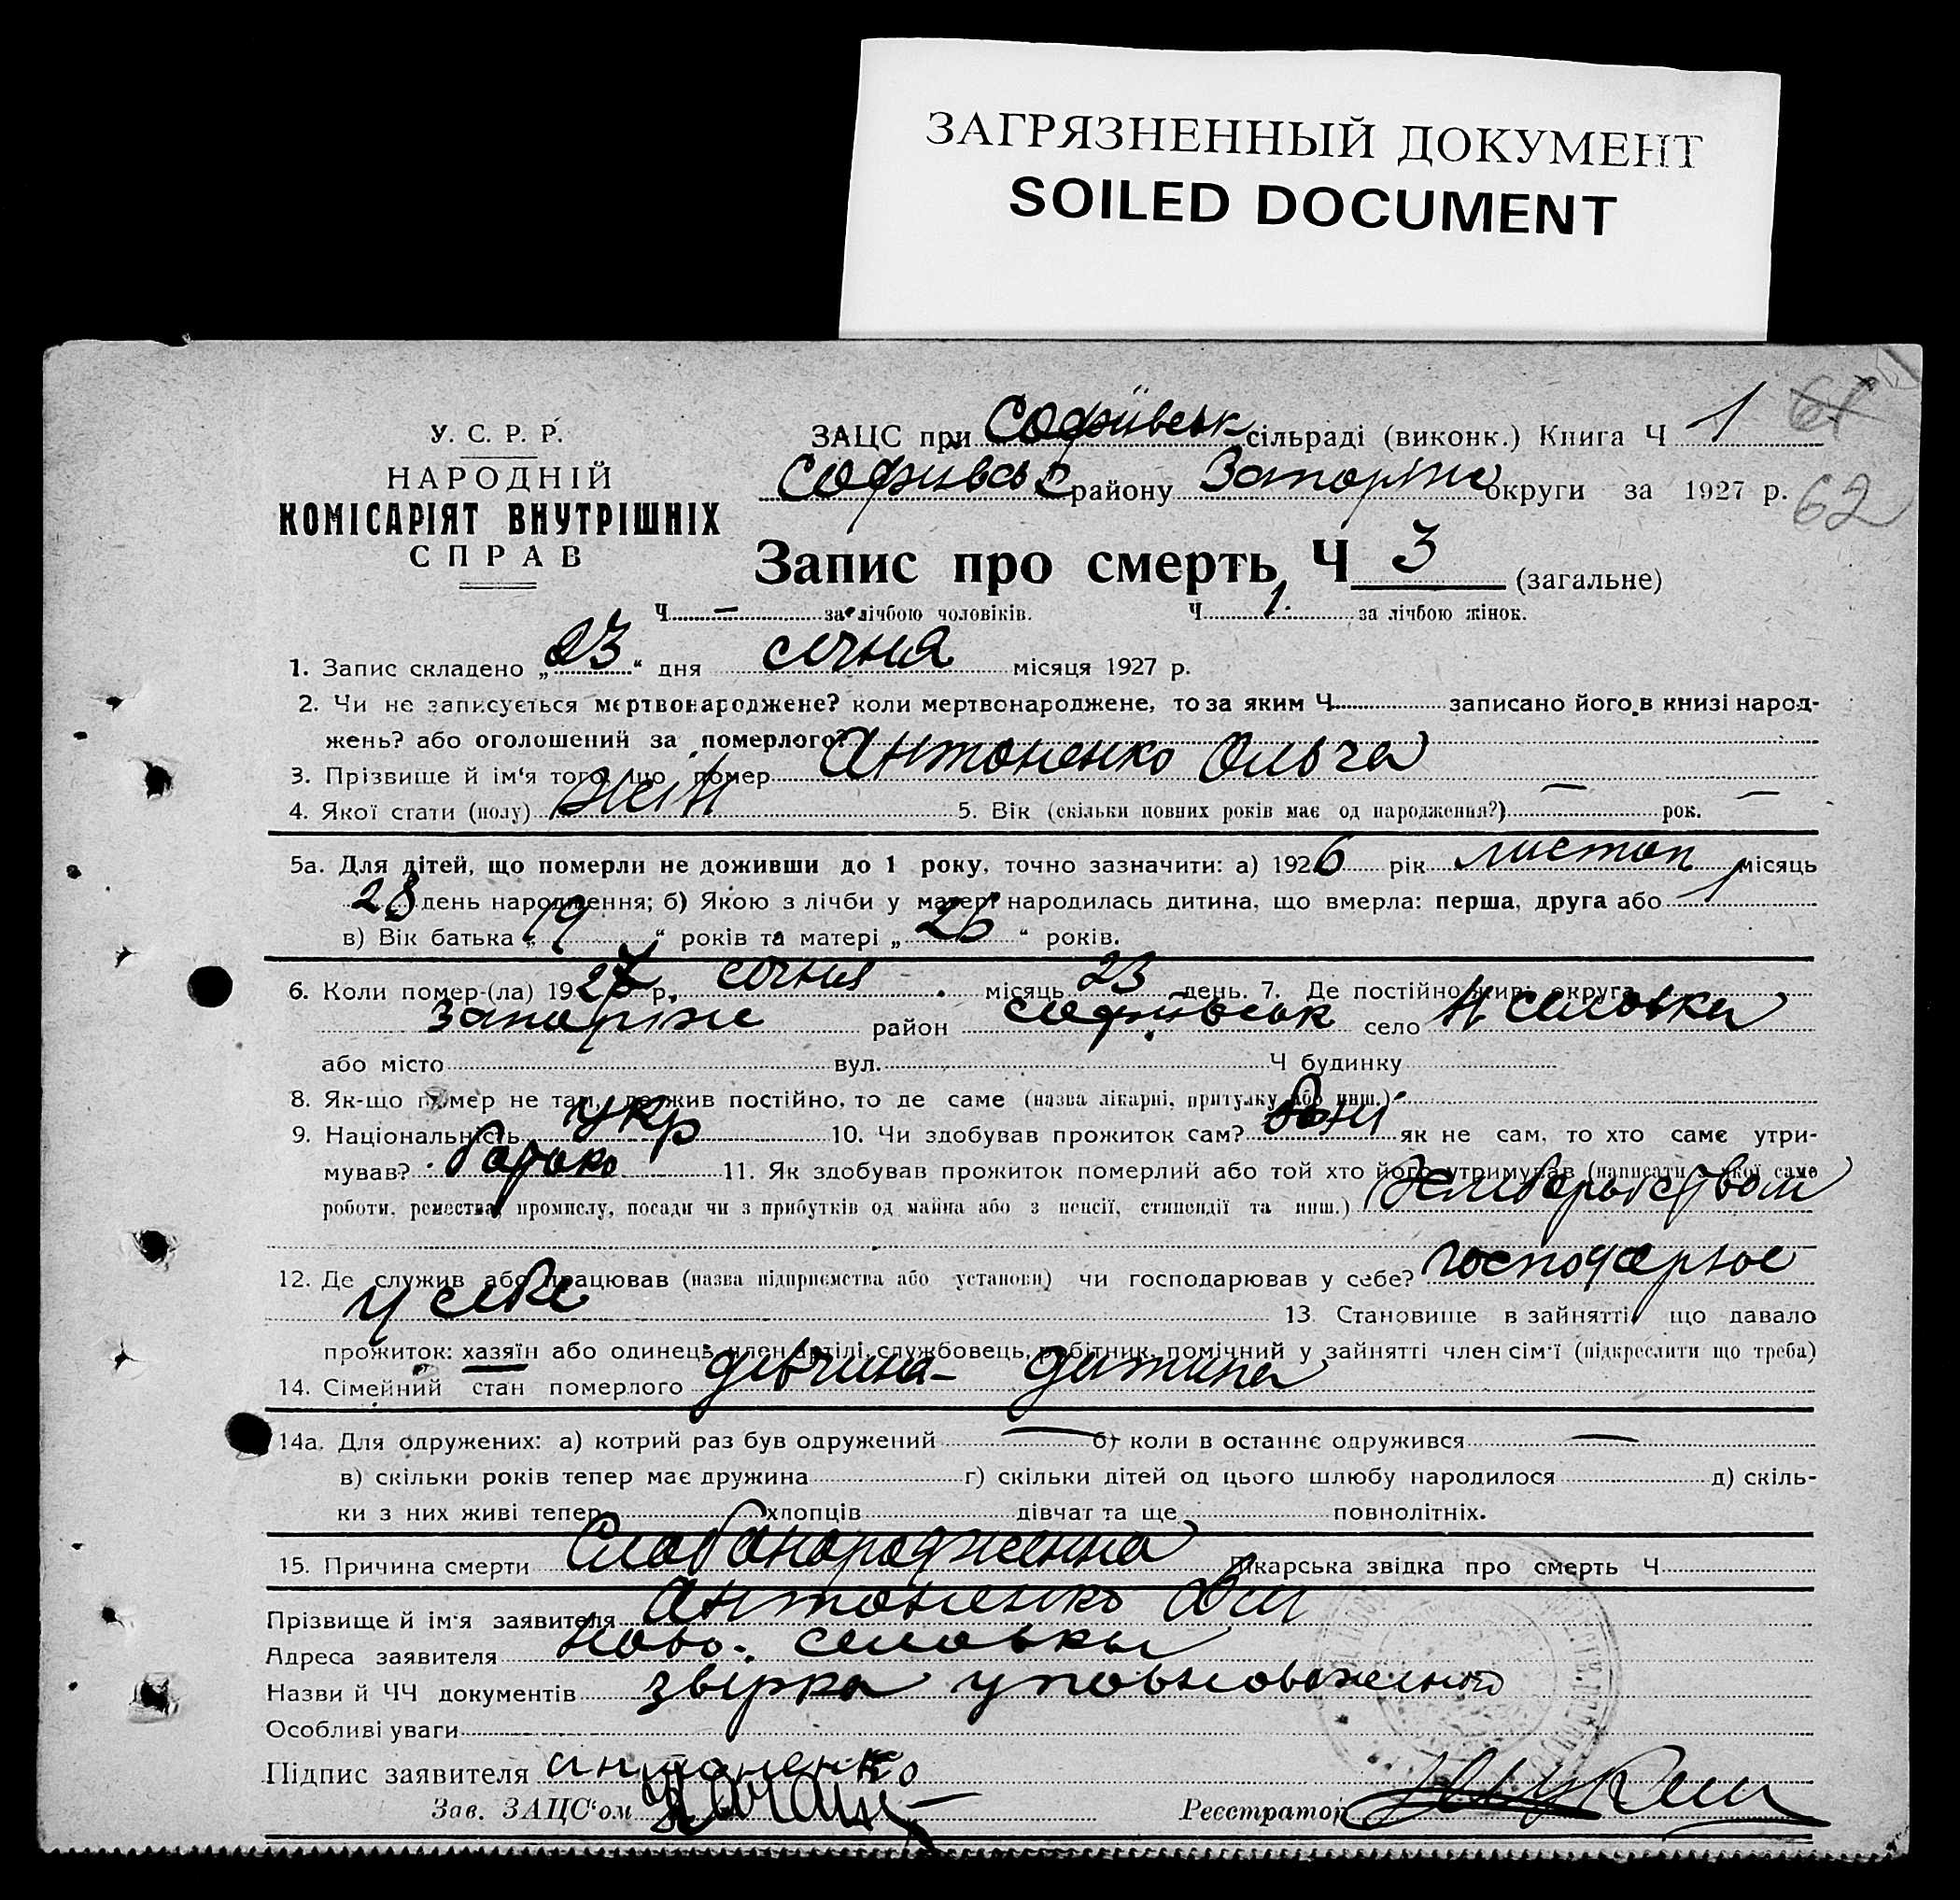 ЗАГРЯЗНЕННЫЙ ДОКУМЕНТ
SOILED DOCUMENT
У. С. Р. Р.
НАРОДНІЙ
КОМІСАРІЯТ ВНУТРІШНІХ
СПРАВ
ЗАЦС при Софиївськ сільраді (виконк.) Книга Ч 1 61
Софиївськ району Запоріж округи за 1927 р. 62
Запис про смерть Ч 3 (загальне)
Ч — за лічбою чоловіків. Ч 1. за лічбою жінок.
1. Запис складено „23“ дня січня місяця 1927 р.
2. Чи не записується мертвонароджене? коли мертвонароджене, то за яким Ч записано його в книзі народ-
жень? або оголошений за померлого?
3. Прізвище й ім'я того, що помер Антоненко Ольга
4. Якої стати (полу) жін 5. Вік (скільки повних років має од народження?) — рок. —
5а. Для дітей, що померли не доживши до 1 року, точно зазначити: а) 1926 рік листоп місяць
28 день народження; б) Якою з лічби у матері народилась дитина, що вмерла: перша, друга або 1
в) Вік батька „19“ років та матері „26“ років.
6. Коли помер-(ла) 1927 р. січня місяць 23 день. 7. Де постійно жив: округа
Запоріж район Софиївськ село Н. селовка
або місто вул. Ч будинку
8. Як-що помер не там, де жив постійно, то де саме (назва лікарні, притулку або инш.)
9. Національність укр 10. Чи здобував прожиток сам? як не сам, то хто саме утри-
мував? батько 11. Як здобував прожиток померлий або той хто його утримував (написати з якої саме
роботи, ремества, промислу, посади чи з прибутків од майна або з пенсії, стипендії та инш.)
12. Де служив або працював (назва підприємства або установи) чи господарював у себе? господарює
у себе 13. Становище в зайнятті, що давало
прожиток: хазяїн або одинець, член артілі, службовець, робітник, помічний у зайнятті член сім'ї (підкреслити що треба)
14. Сімейний стан померлого дівчина - дитина
14а. Для одружених: а) котрий раз був одружений — б) коли в останнє одружився —
в) скільки років тепер має дружина г) скільки дітей од цього шлюбу народилося д) скіль-
ки з них живі тепер хлопців дівчат та ще повнолітніх.
15. Причина смерти Слабонародженна Лікарська звідка про смерть Ч
Прізвище й ім'я заявителя Антоненко
Адреса заявителя Ново. селовка
Назви й ЧЧ документів звірка уповноваженого
Особливі уваги
Підпис заявителя антоненко
Зав. ЗАЦС'ом
Реєстратор